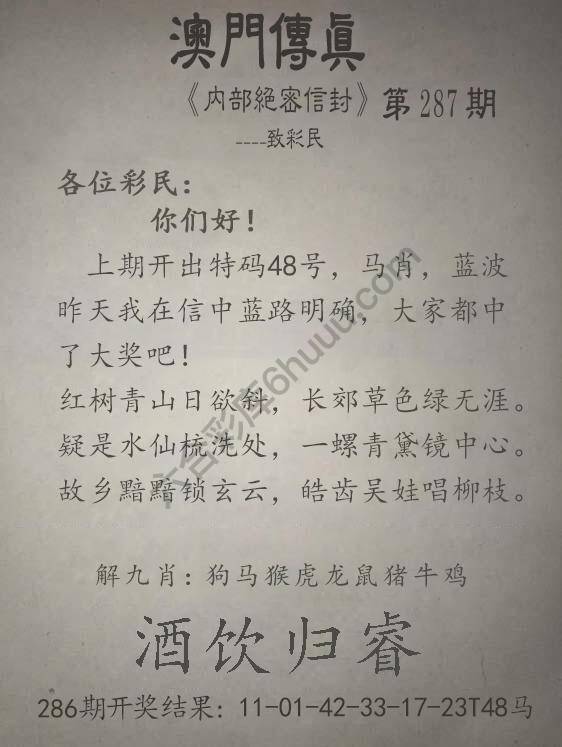 澳門傳眞
《内部絕密信封》第287期
----致彩民
各位彩民：
你们好！
上期开出特码48号，马肖，蓝波
昨天我在信中蓝路明确，大家都中
了大奖吧！
红树青山日欲斜，长郊草色绿无涯。
疑是水仙梳洗处，一螺青黛镜中心。
故乡黯黯锁玄云，皓齿吴娃唱柳枝。
解九肖：狗马猴虎龙鼠猪牛鸡
酒饮归睿
286期开奖结果：11-01-42-33-17-23T48马
六合彩库6huuu.com